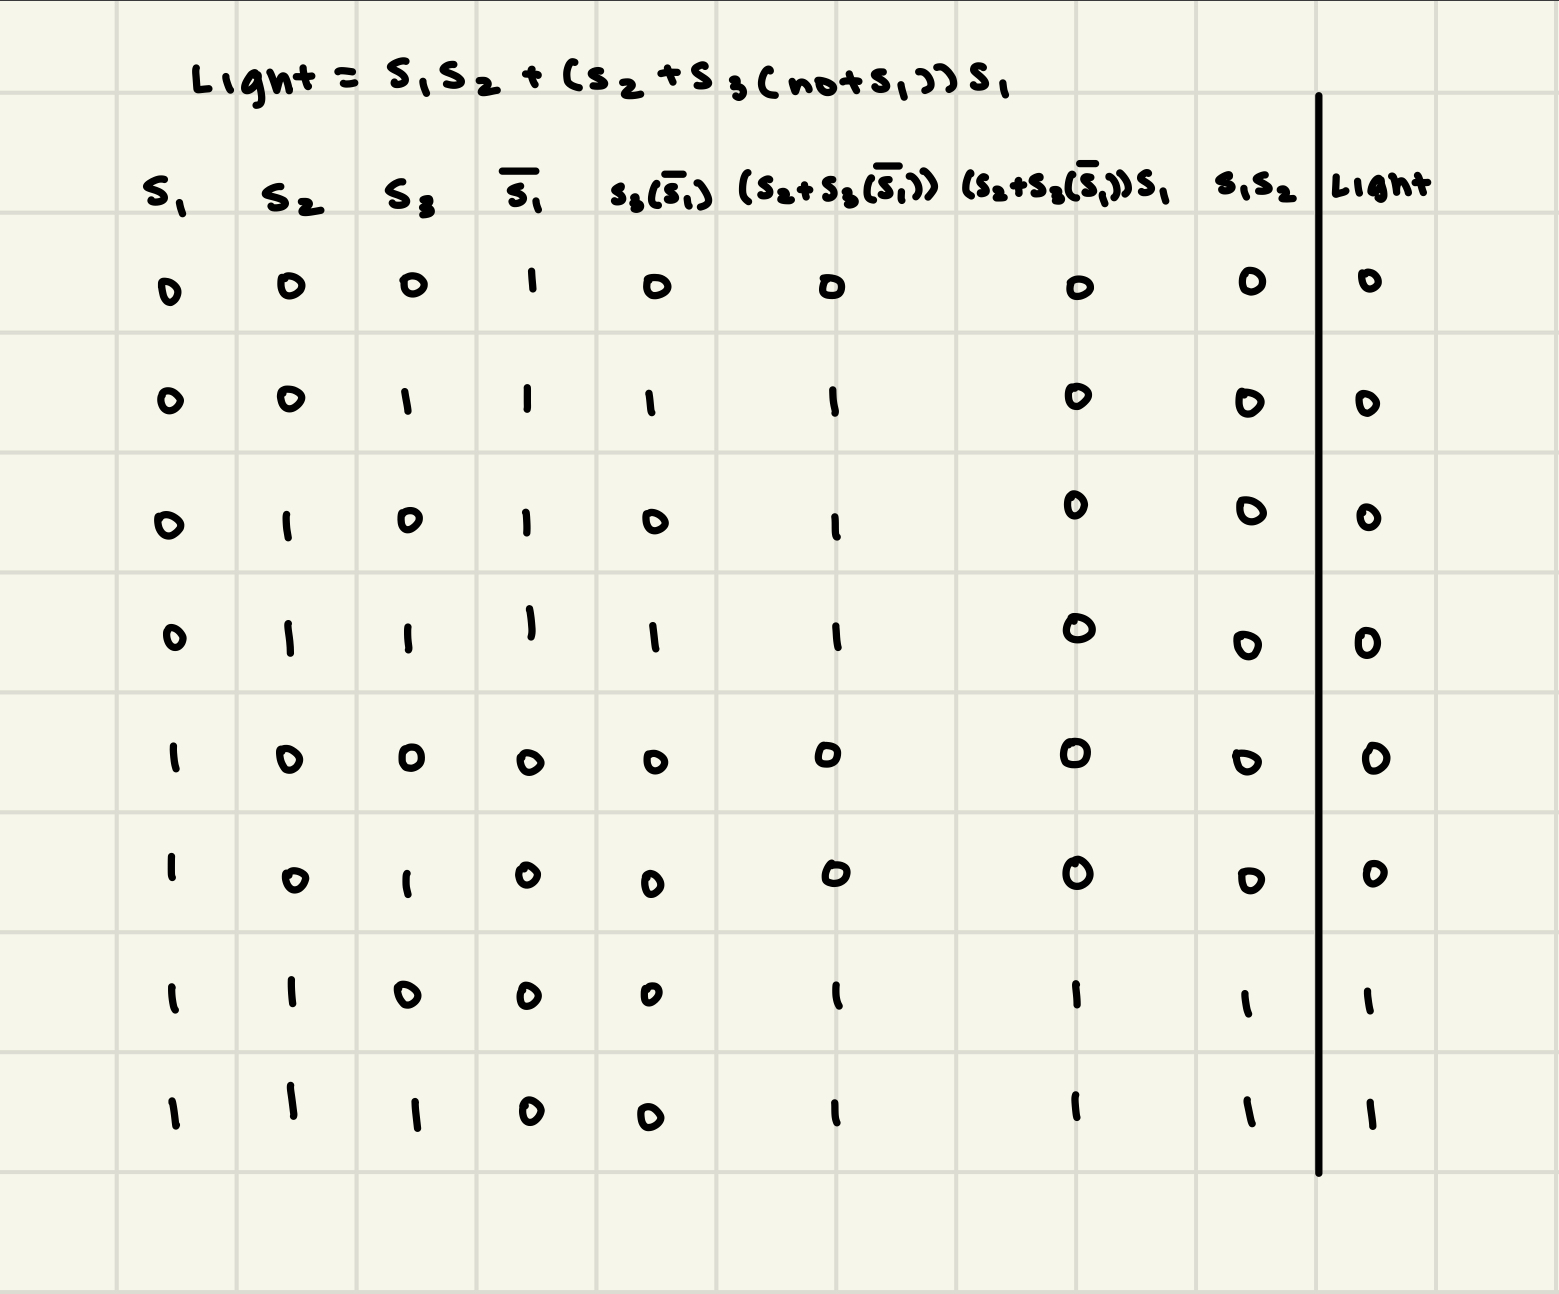 Light = S₁S₂ + (S₂ + S₃(not S₁))S₁
S₁ S₂ S₃ S̅₁ S₃(S̅₁) (S₂+S₃(S̅₁)) (S₂+S₃(S̅₁))S₁ S₁S₂ Light
0 0 0 1 0 0 0 0 0
0 0 1 1 1 1 0 0 0
0 1 0 1 0 1 0 0 0
0 1 1 1 1 1 0 0 0
1 0 0 0 0 0 0 0 0
1 0 1 0 0 0 0 0 0
1 1 0 0 0 1 1 1 1
1 1 1 0 0 1 1 1 1